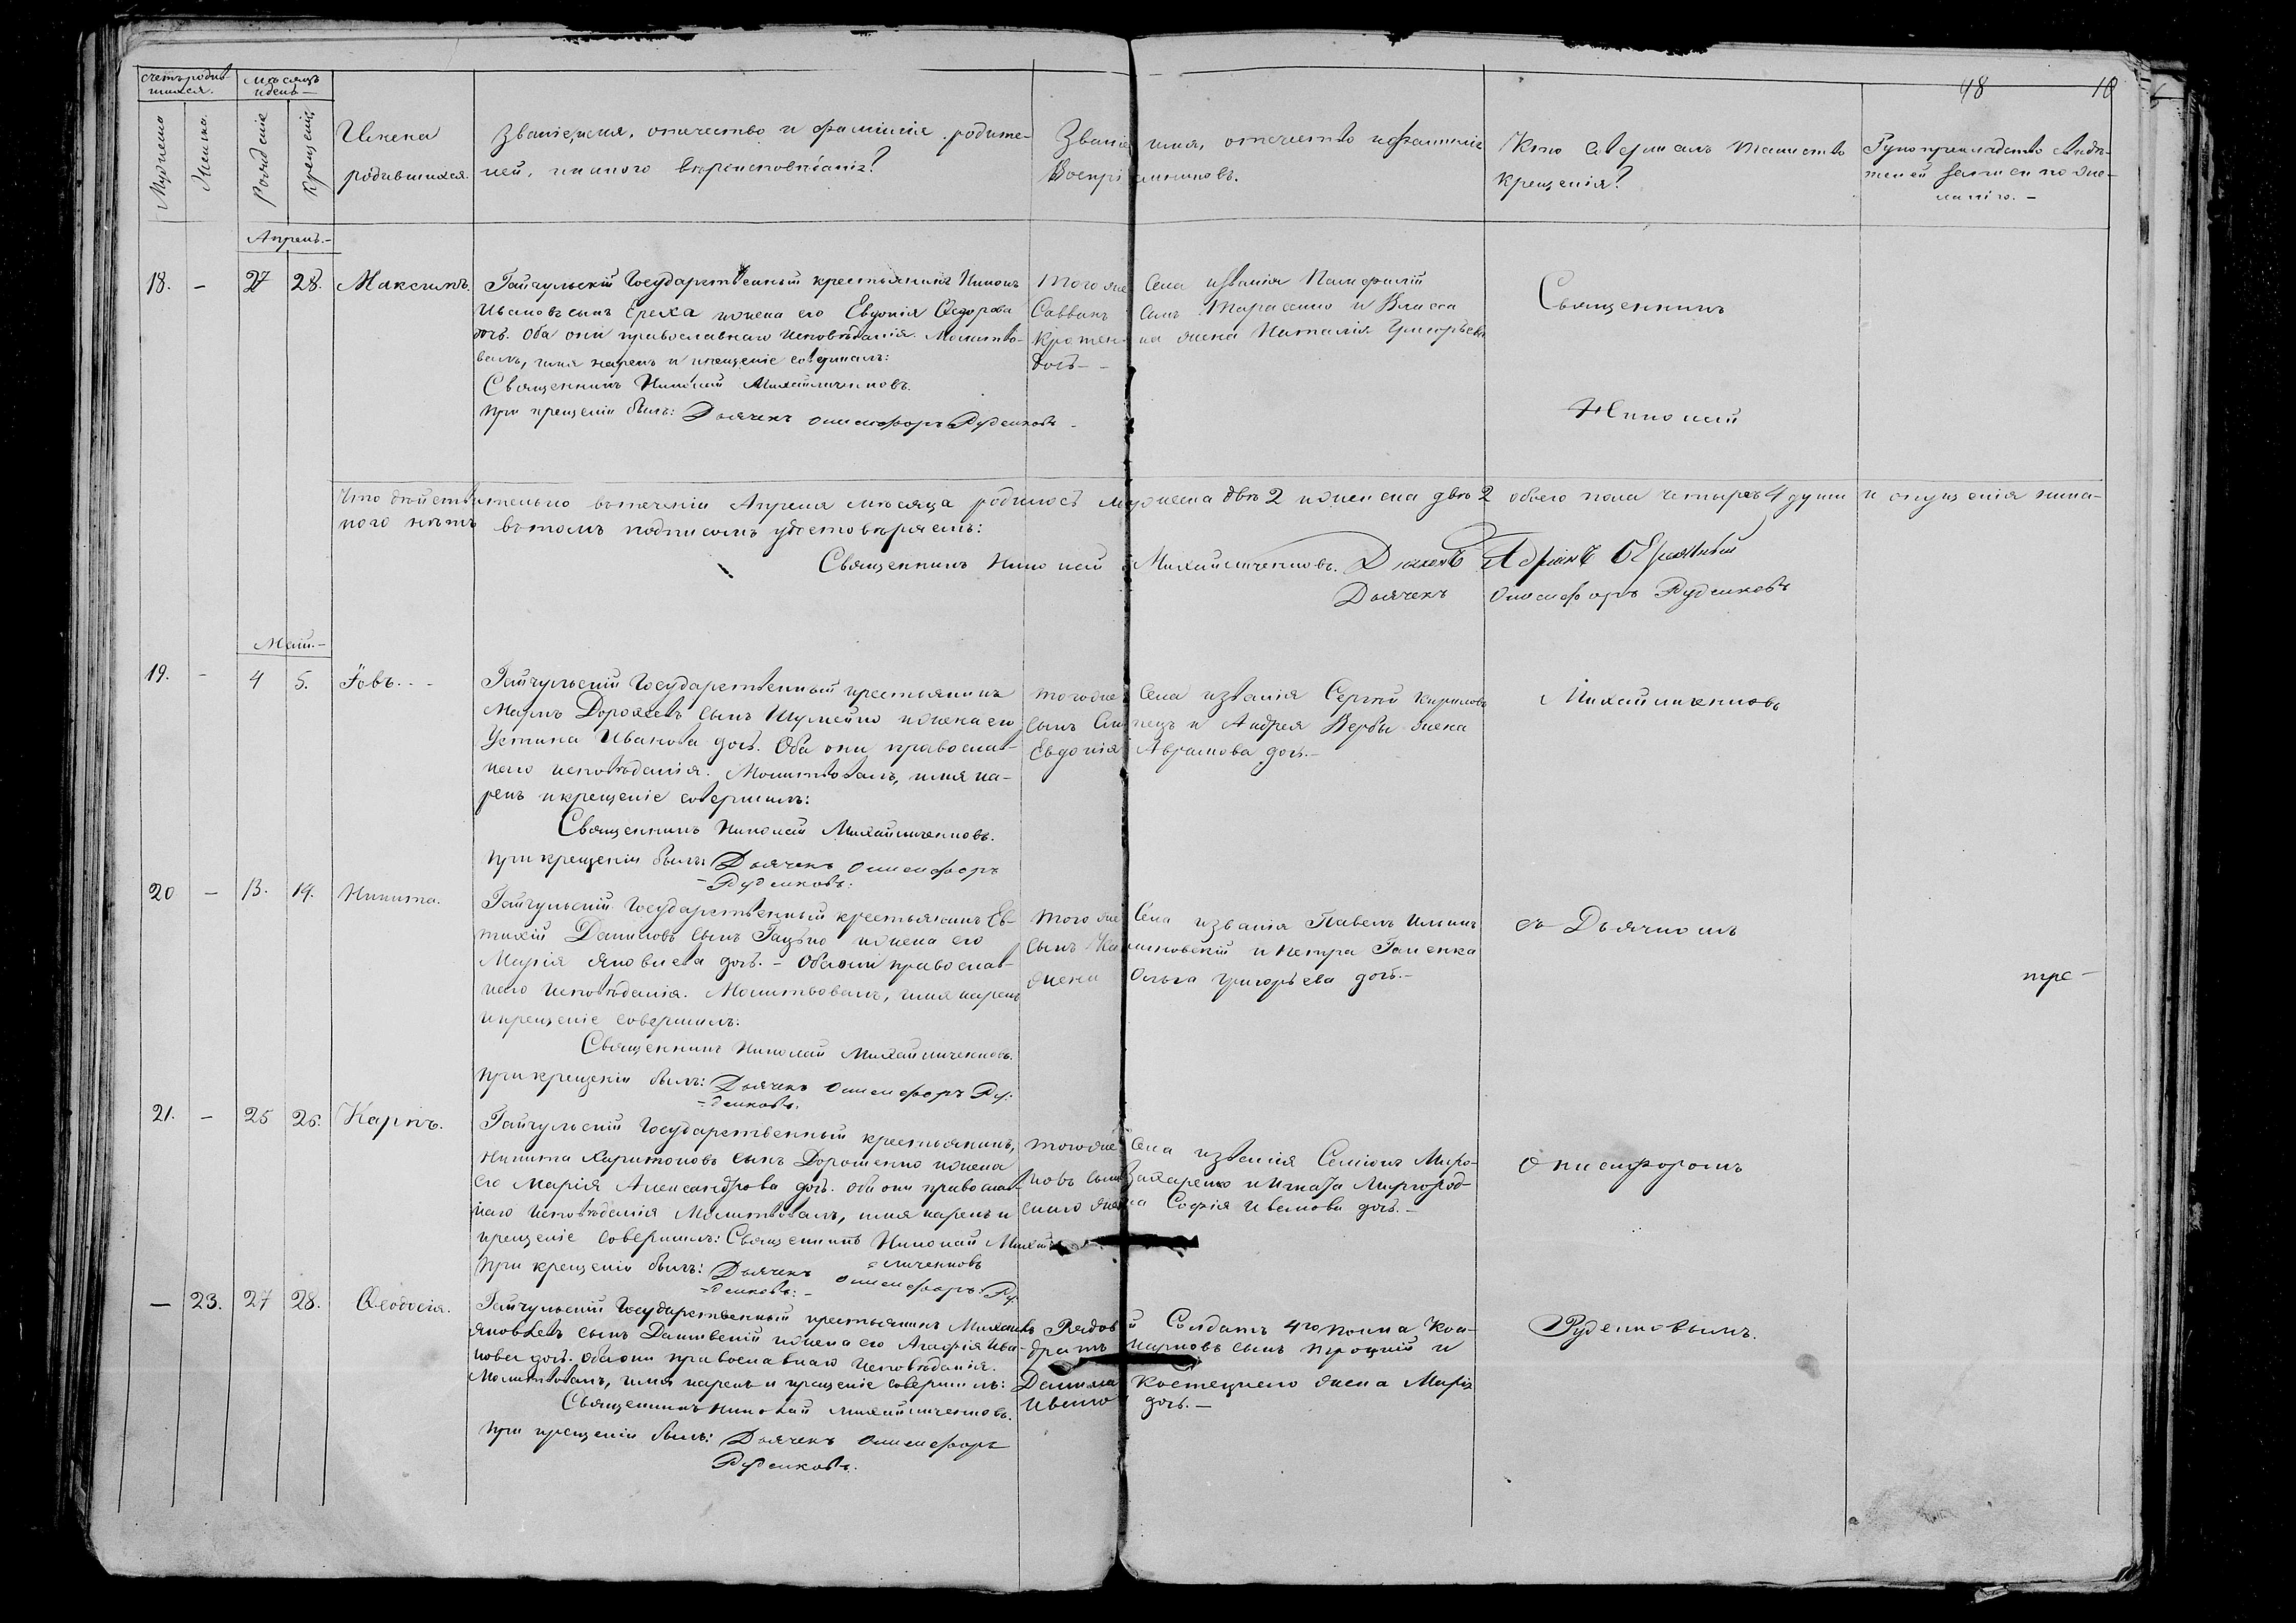 48 10
Счетъ родив-
шихся.
Мѣсяцъ
и день
Мужеска
Женска.
Рожденіе
Крещеніе
Имена
родившихся.
Званіе, имя, отчество и фамилія родите-
лей, и какого вѣроисповѣданія?
Званіе имя, отчество и фамилія
Воспріемниковъ.
Кто совершалъ таинство
крещенія?
Рукоприкладство свидѣ-
телей записи по же-
ланію. –
Апрель. –
18. – 27 28. Максимъ.
Гайчульскій Государственный крестьянинъ Никонъ
Ивановъ сынъ Ереха и жена его Евдокія Ѳедорова
дочь. Оба они православнаго исповѣданія. Молитво-
валъ, имя нарекъ и крещеніе совершилъ:
Священникъ Николай Михайличенковъ.
При крещеніи былъ: Дьячекъ Онисифоръ Руденковъ.
Того же Села и званія Памфилій
Саввинъ сынъ Тарасенко и Власа
жена Наталія Григорьева
дочь –
Священникъ
Николай
Что дѣйствительно въ теченіи Апреля мѣсяца родилось мужеска двѣ 2 и женска двѣ 2 обоего пола четыре 4 души и опущенія ника-
кого нѣтъ въ томъ подписомъ удостовѣряемъ:
Священникъ Николай Михайличенковъ. Діаконъ Адріанъ
Дьячекъ Онисифоръ Руденковъ
Май. –
19. – 4 5. Іовъ. –
Гайчульскій Государственный крестьянинъ
Маркъ Дорофеевъ сынъ Шумейко и жена его
Устина Иванова дочь. Оба они православ-
наго исповѣданія. Молитвовалъ, имя на-
рекъ и крещеніе совершилъ:
Священникъ Николай Михайличенковъ.
При крещеніи былъ: Дьячекъ Онисифоръ
– Руденковъ.
Того же Села и званія Сергѣй Кириловъ
сынъ Слипецъ и Андрея Вербы жена
Евдокія Аврамова дочь. –
Михайличенковъ
20 – 13. 14. Никита.
Гайчульскій Государственный крестьянинъ Ев-
тихій Даниловъ сынъ Гацько и жена его
Марія Яковлева дочь. – Оба они православ-
наго исповѣданія. Молитвовалъ, имя нарекъ
и крещеніе совершилъ:
Священникъ Николай Михайличенковъ.
При крещеніи былъ: Дьячекъ Онисифоръ Ру-
– денковъ.
Того же Села и званія Павелъ Ильинъ
сынъ Калиновскій и Петра Галенка
жена Ольга Григорьева дочь. –
съ Дьячкомъ
тре –
21. – 25 26. Карпъ.
Гайчульскій Государственный крестьянинъ,
Никита Харитоновъ сынъ Дорошенко и жена
его Марія Александрова дочь. Оба они православ-
наго исповѣданія. Молитвовалъ, имя нарекъ и
крещеніе совершилъ: Священникъ Николай Михай-
личенковъ
При крещеніи былъ: Дьячекъ Онисифоръ Ру-
– денковъ. –
Того же Села и званія Семіонъ Миро-
новъ сынъ Захаренко и Игната Миргород-
скаго жена Софія Иванова дочь. –
Онисифоромъ
– 23. 27 28. Ѳеодосія.
Гайчульскій Государственный крестьянинъ Михаилъ
Яковлевъ сынъ и жена его Агафія Ива-
нова дочь. Оба они православнаго исповѣданія.
Молитвовалъ, имя нарекъ и крещеніе совершилъ:
Священникъ Николай Михайличенковъ.
При крещеніи былъ: Дьячекъ Онисифоръ
Руденковъ.
Рядовой Солдатъ 4го полка Кон-
дратъ Карповъ сынъ и
Данила жена Марія
дочь. –
Руденковымъ.